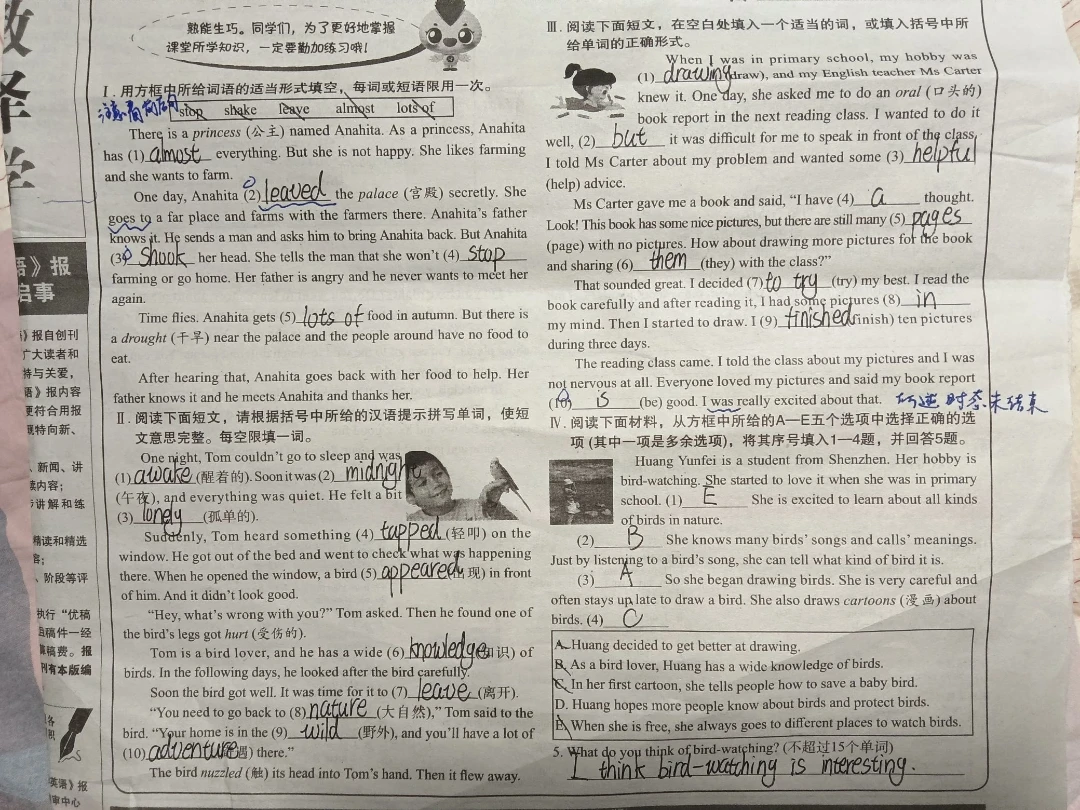 敦
择
学
语》报
启事
》报自创刊
广大读者和
持与关爱,
语》报内容
更符合用报
既特向新、
、新闻、讲
读内容;
讲解和练
精读和精选
容;
、阶段等评
执行“优稿
担稿件一经
稿费。报
有本版编
英语》报
审中心
熟能生巧。同学们,为了更好地掌握
课堂所学知识,一定要勤加练习哦!
Ⅰ. 用方框中所给词语的适当形式填空,每词或短语限用一次。
注意看前后句
stop shake leave almost lots of
There is a princess (公主) named Anahita. As a princess, Anahita
has (1) almost everything. But she is not happy. She likes farming
and she wants to farm.
One day, Anahita (2) leaved the palace (宫殿) secretly. She
goes to a far place and farms with the farmers there. Anahita's father
knows it. He sends a man and asks him to bring Anahita back. But Anahita
(3) shook her head. She tells the man that she won't (4) stop
farming or go home. Her father is angry and he never wants to meet her
again.
Time flies. Anahita gets (5) lots of food in autumn. But there is
a drought (干旱) near the palace and the people around have no food to
eat.
After hearing that, Anahita goes back with her food to help. Her
father knows it and he meets Anahita and thanks her.
Ⅱ. 阅读下面短文,请根据括号中所给的汉语提示拼写单词,使短
文意思完整。每空限填一词。
One night, Tom couldn't go to sleep and was
(1) awake (醒着的). Soon it was (2) midnight
(午夜), and everything was quiet. He felt a bit
(3) lonely (孤单的).
Suddenly, Tom heard something (4) tapped (轻叩) on the
window. He got out of the bed and went to check what was happening
there. When he opened the window, a bird (5) appeared 现) in front
of him. And it didn't look good.
“Hey, what's wrong with you?” Tom asked. Then he found one of
the bird's legs got hurt (受伤的).
Tom is a bird lover, and he has a wide (6) knowledge 识) of
birds. In the following days, he looked after the bird carefully.
Soon the bird got well. It was time for it to (7) leave (离开).
“You need to go back to (8) nature (大自然),” Tom said to the
bird. “Your home is in the (9) wild (野外), and you'll have a lot of
(10) adventure 遇) there.”
The bird nuzzled (触) its head into Tom's hand. Then it flew away.
Ⅲ. 阅读下面短文,在空白处填入一个适当的词,或填入括号中所
给单词的正确形式。
When I was in primary school, my hobby was
(1) drawing (draw), and my English teacher Ms Carter
knew it. One day, she asked me to do an oral (口头的)
book report in the next reading class. I wanted to do it
well, (2) but it was difficult for me to speak in front of the class.
I told Ms Carter about my problem and wanted some (3) helpful
(help) advice.
Ms Carter gave me a book and said, “I have (4) a thought.
Look! This book has some nice pictures, but there are still many (5) pages
(page) with no pictures. How about drawing more pictures for the book
and sharing (6) them (they) with the class?”
That sounded great. I decided (7) to try (try) my best. I read the
book carefully and after reading it, I had some pictures (8) in
my mind. Then I started to draw. I (9) finished finish) ten pictures
during three days.
The reading class came. I told the class about my pictures and I was
not nervous at all. Everyone loved my pictures and said my book report
(10) is (be) good. I was really excited about that.
Ⅳ. 阅读下面材料,从方框中所给的A—E五个选项中选择正确的选
项 (其中一项是多余选项),将其序号填入1—4题,并回答5题。
Huang Yunfei is a student from Shenzhen. Her hobby is
bird-watching. She started to love it when she was in primary
school. (1) E She is excited to learn about all kinds
of birds in nature.
(2) B She knows many birds' songs and calls' meanings.
Just by listening to a bird's song, she can tell what kind of bird it is.
(3) A So she began drawing birds. She is very careful and
often stays up late to draw a bird. She also draws cartoons (漫画) about
birds. (4) C
A. Huang decided to get better at drawing.
B. As a bird lover, Huang has a wide knowledge of birds.
C. In her first cartoon, she tells people how to save a baby bird.
D. Huang hopes more people know about birds and protect birds.
E. When she is free, she always goes to different places to watch birds.
5. What do you think of bird-watching? (不超过15个单词)
I think bird-watching is interesting.